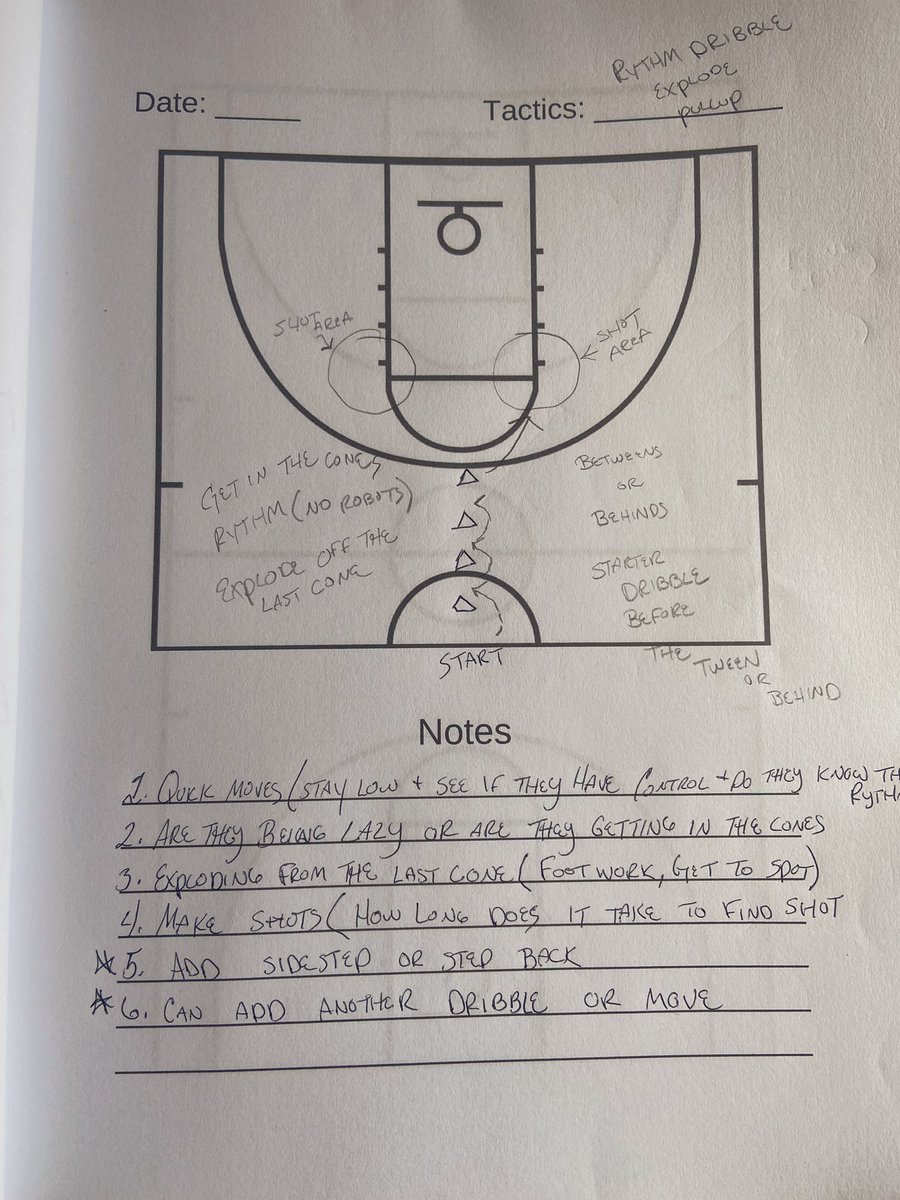 RYTHM DRIBBLE
EXPLODE
PULLUP
Date:
Tactics:
SHOT AREA
SHOT
AREA
GET IN THE CONES
RYTHM (NO ROBOTS)
EXPLODE OFF THE
LAST CONE
BETWEENS
OR
BEHINDS
STARTER
DRIBBLE
BEFORE
THE TWEEN
OR
BEHIND
START
Notes
1. QUICK MOVES (STAY LOW + SEE IF THEY HAVE CONTROL + DO THEY KNOW
2. ARE THEY BEING LAZY OR ARE THEY GETTING IN THE CONES
3. EXPLODING FROM THE LAST CONE (FOOTWORK, GET TO SPOT)
4. MAKE SHOTS (HOW LONG DOES IT TAKE TO FIND SHOT
5. ADD SIDESTEP OR STEP BACK
6. CAN ADD ANOTHER DRIBBLE OR MOVE